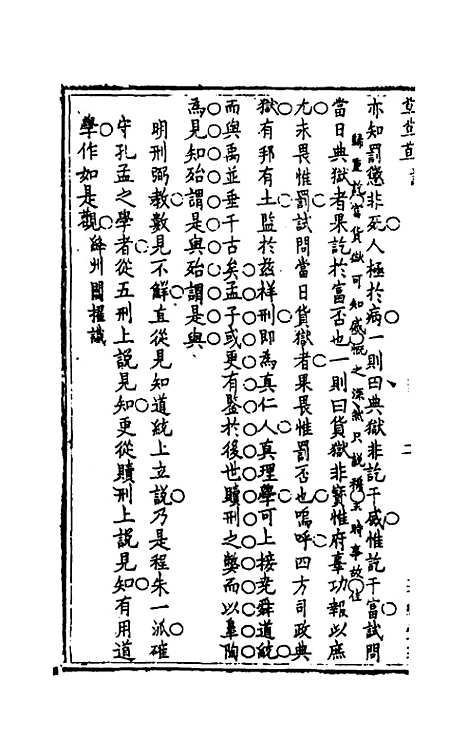 亦知罰懲非死人極於病一則曰典獄非訖于威惟訖于富試問
歸重訖富貨獄可知感慨之深然只說穆王時事故住
當日典獄者果訖於富否也一則曰貨獄非寶惟府辜功報以庶
尤未畏惟罰試問當日貨獄者果畏惟罰否也嗚呼四方司政典
獄有邦有土監於茲祥刑即為真仁人真理學可上接堯舜道統
而與禹並垂千古矣孟子或更有鑒於後世贖刑之獘而以臯陶
為見知殆謂是與殆謂是與
明刑弼教數見不鮮直從見知道統上立說乃是程朱一派確
守孔孟之學者從五刑上說見知更從贖刑上說見知有用道
學作如是觀 絳州閻擢識